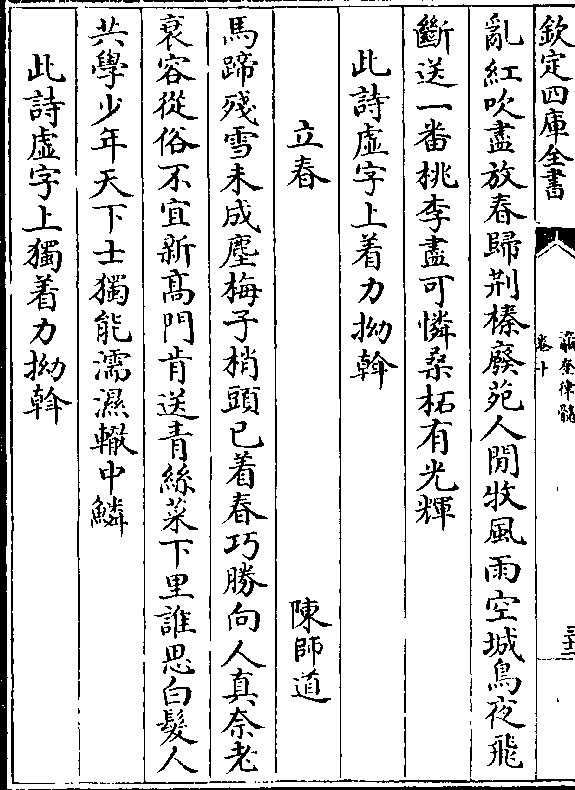 欽定四庫全書
瀛奎律髓
卷十
三十二
亂紅吹盡放春歸荆榛廢苑人閒牧風雨空城鳥夜飛
斷送一番桃李盡可憐桑柘有光輝
此詩虛字上着力拗斡
立春 陳師道
馬蹄殘雪未成塵梅子梢頭已着春巧勝向人真奈老
衰容從俗不宜新髙門肯送青絲菜下里誰思白髮人
共學少年天下士獨能濡濕轍中鱗
此詩虛字上獨着力拗斡